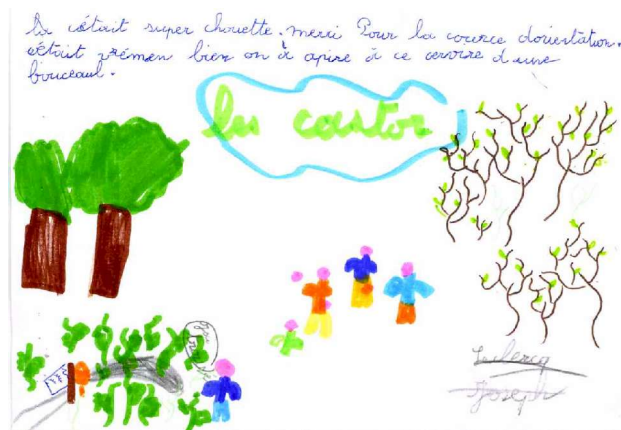 la cétait super chouette. merci Pour la cource dorientation.
cétait vrémen bien on à apire à ce cervire d une
bouceaul.
les castor
Leclercq
Joseph